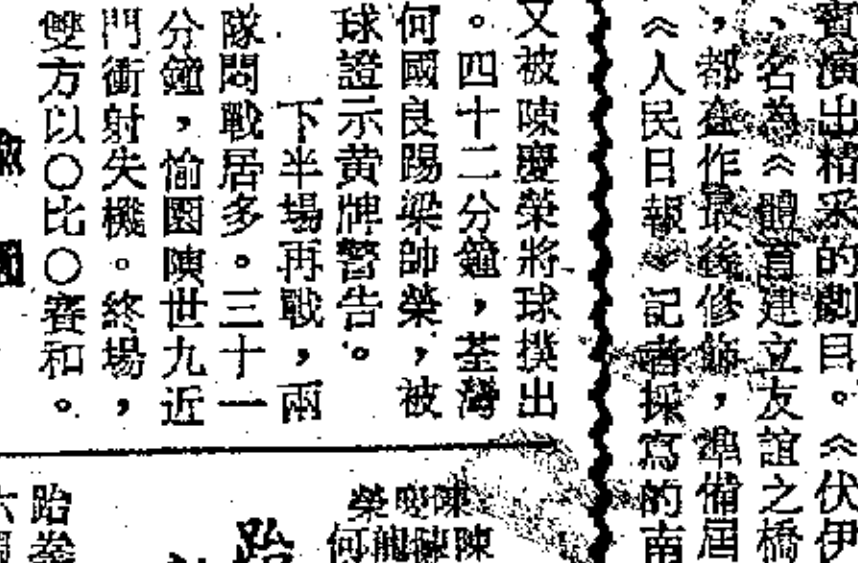 賓演出精采的劇目。《伏伊
、名為《體育建立友誼之橋
，都在作最後修飾，準備屆
《人民日報》記者採寫的南
又被陳慶榮將球撲出
。四十二分鐘，荃灣
何國良陽梁帥榮，被
球證示黄牌警告。
下半場再戰，兩
隊悶戰居多。三十一
分鐘，愉園陳世九近
門衝射失機。終場，
雙方以○比○賽和。
陳
陳慶榮
何
跆
跆拳